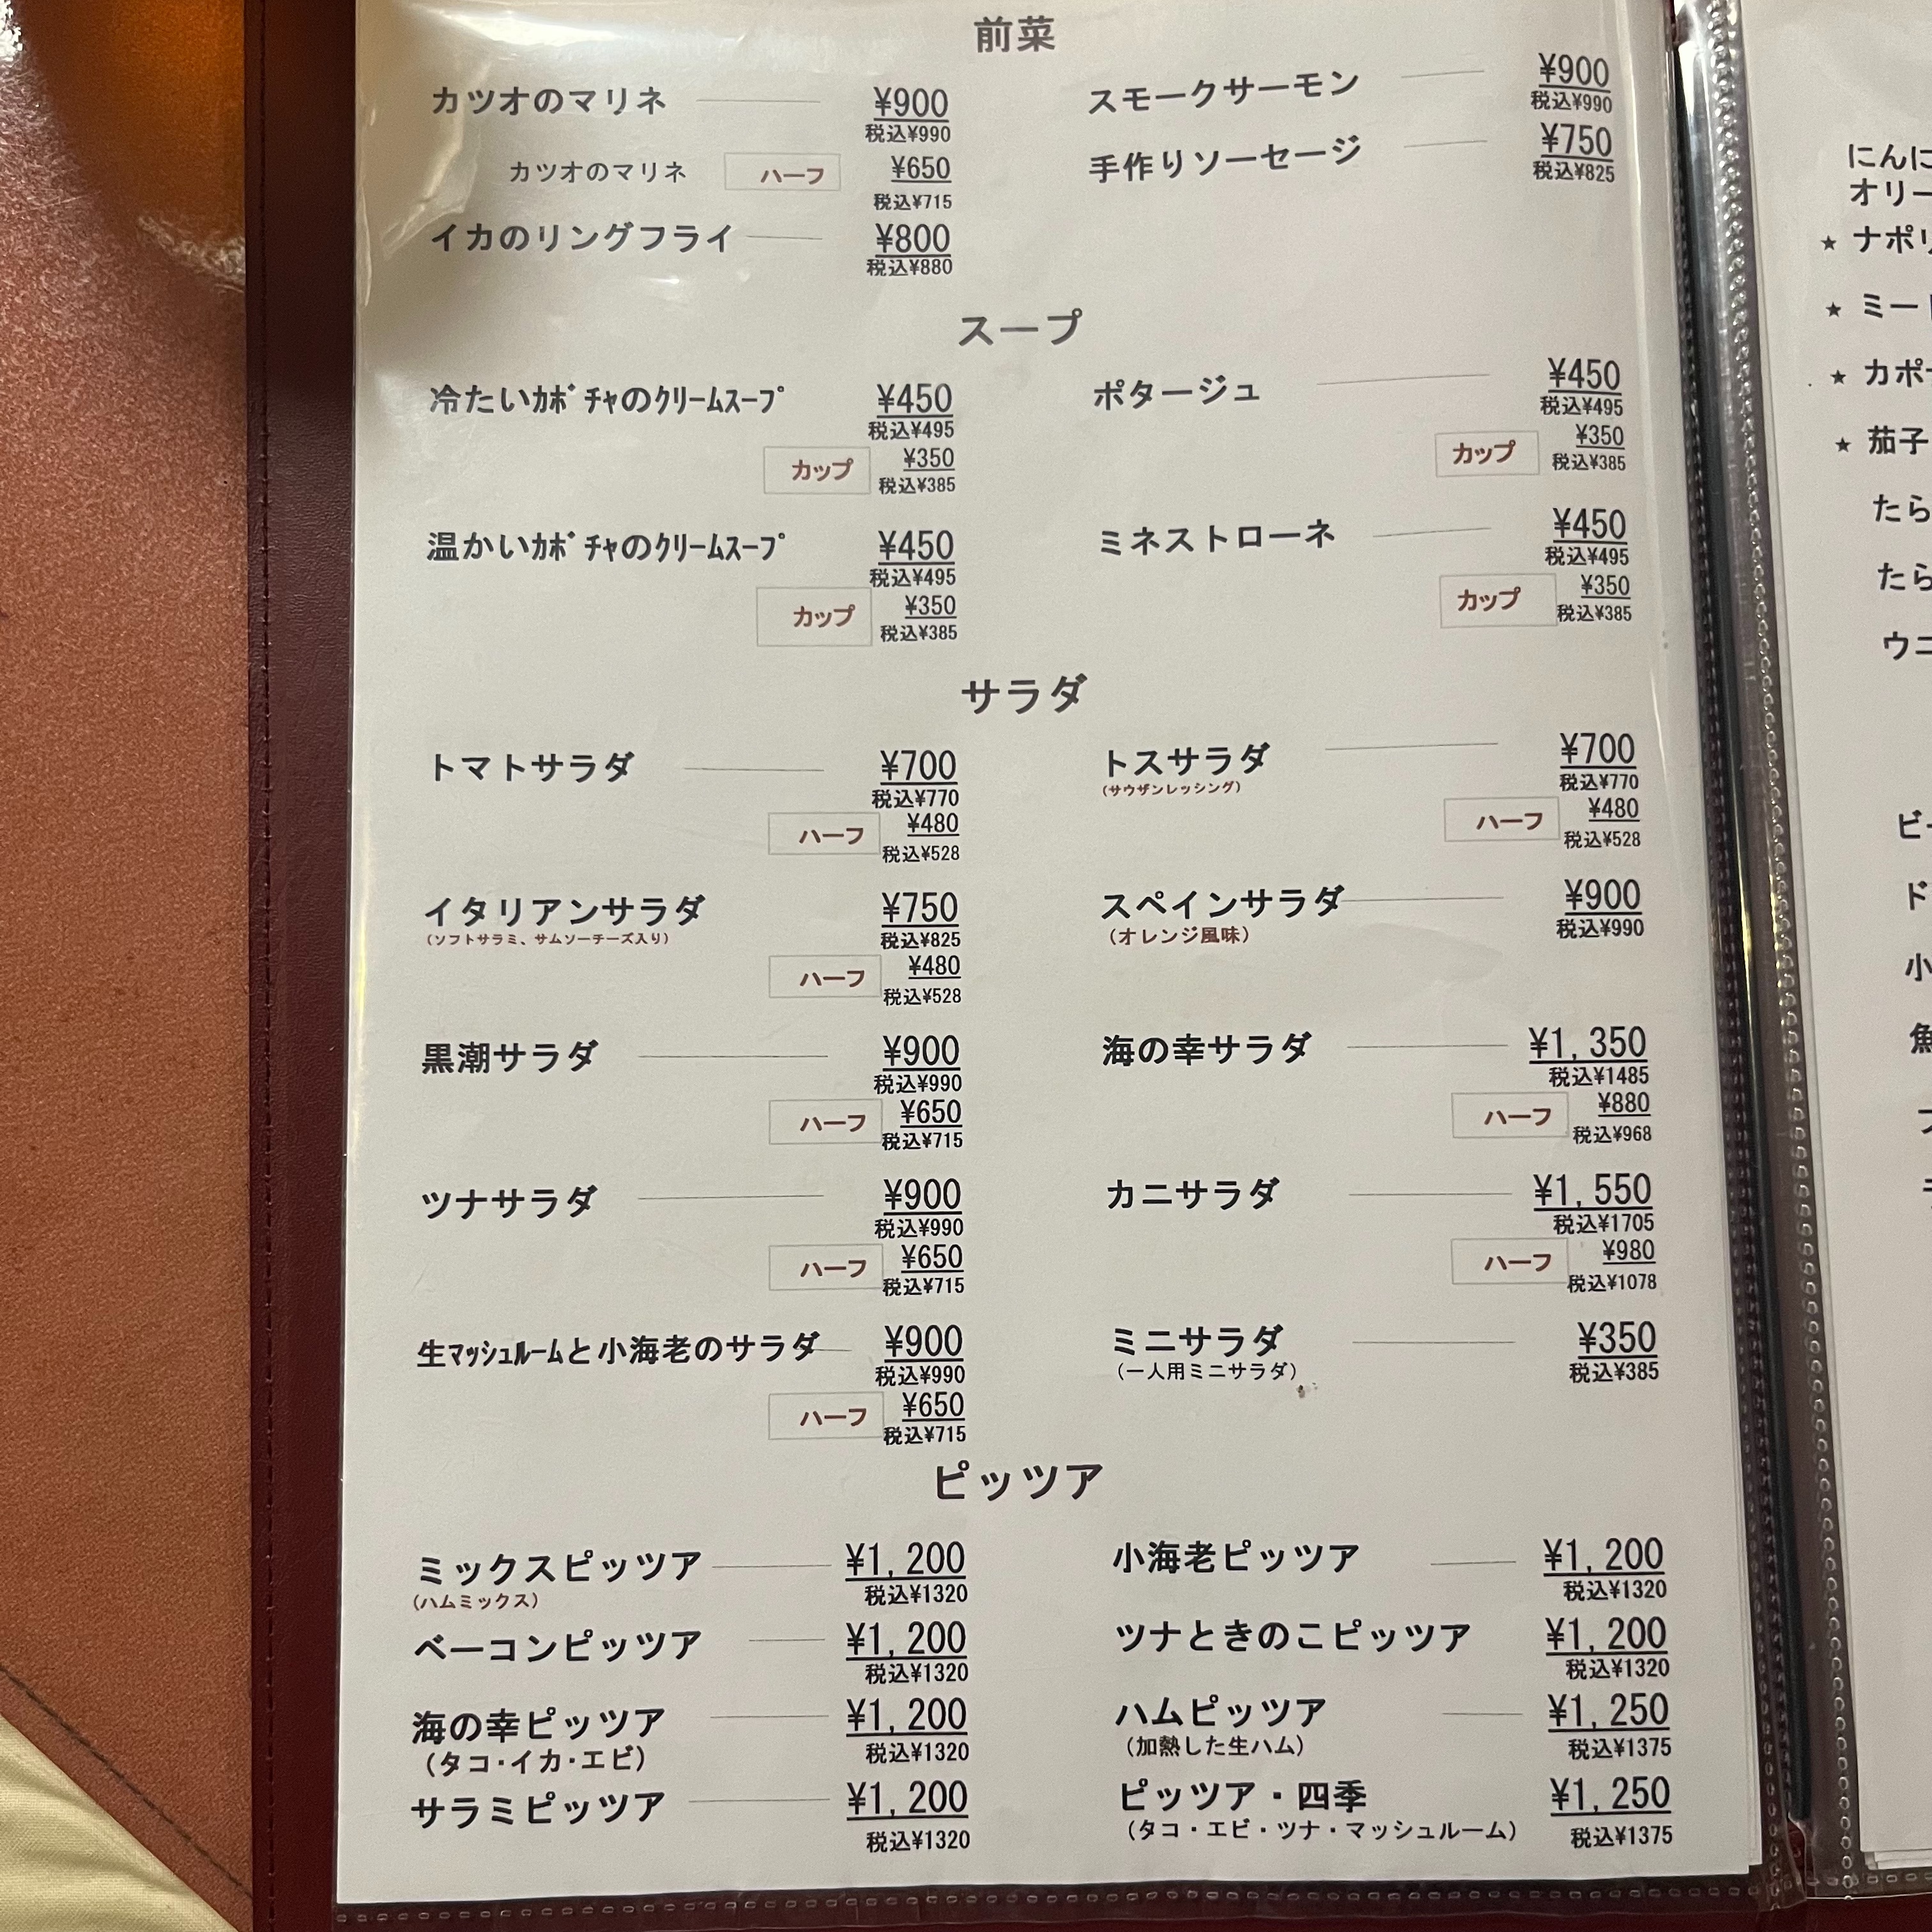 前菜
カツオのマリネ ¥900
税込¥990
カツオのマリネ ハーフ ¥650
税込¥715
イカのリングフライ ¥800
税込¥880
スモークサーモン ¥900
税込¥990
手作りソーセージ ¥750
税込¥825
スープ
冷たいｶﾎﾞﾁｬのｸﾘｰﾑｽｰﾌﾟ ¥450
税込¥495
カップ ¥350
税込¥385
温かいｶﾎﾞﾁｬのｸﾘｰﾑｽｰﾌﾟ ¥450
税込¥495
カップ ¥350
税込¥385
ポタージュ ¥450
税込¥495
カップ ¥350
税込¥385
ミネストローネ ¥450
税込¥495
カップ ¥350
税込¥385
サラダ
トマトサラダ ¥700
税込¥770
ハーフ ¥480
税込¥528
イタリアンサラダ ¥750
(ソフトサラミ、サムソーチーズ入り) 税込¥825
ハーフ ¥480
税込¥528
黒潮サラダ ¥900
税込¥990
ハーフ ¥650
税込¥715
ツナサラダ ¥900
税込¥990
ハーフ ¥650
税込¥715
生ﾏｯｼｭﾙｰﾑと小海老のサラダ ¥900
税込¥990
ハーフ ¥650
税込¥715
トスサラダ ¥700
(サウザンレッシング) 税込¥770
ハーフ ¥480
税込¥528
スペインサラダ ¥900
(オレンジ風味) 税込¥990
海の幸サラダ ¥1,350
税込¥1485
ハーフ ¥880
税込¥968
カニサラダ ¥1,550
税込¥1705
ハーフ ¥980
税込¥1078
ミニサラダ ¥350
(一人用ミニサラダ) 税込¥385
ピッツア
ミックスピッツア ¥1,200
(ハムミックス) 税込¥1320
ベーコンピッツア ¥1,200
税込¥1320
海の幸ピッツア ¥1,200
(タコ・イカ・エビ) 税込¥1320
サラミピッツア ¥1,200
税込¥1320
小海老ピッツア ¥1,200
税込¥1320
ツナときのこピッツア ¥1,200
税込¥1320
ハムピッツア ¥1,250
(加熱した生ハム) 税込¥1375
ピッツア・四季 ¥1,250
(タコ・エビ・ツナ・マッシュルーム) 税込¥1375
にんに
オリー
★ ナポリ
★ ミート
★ カポ
★ 茄子
たら
たら
ウニ
ビー
ド
小
魚